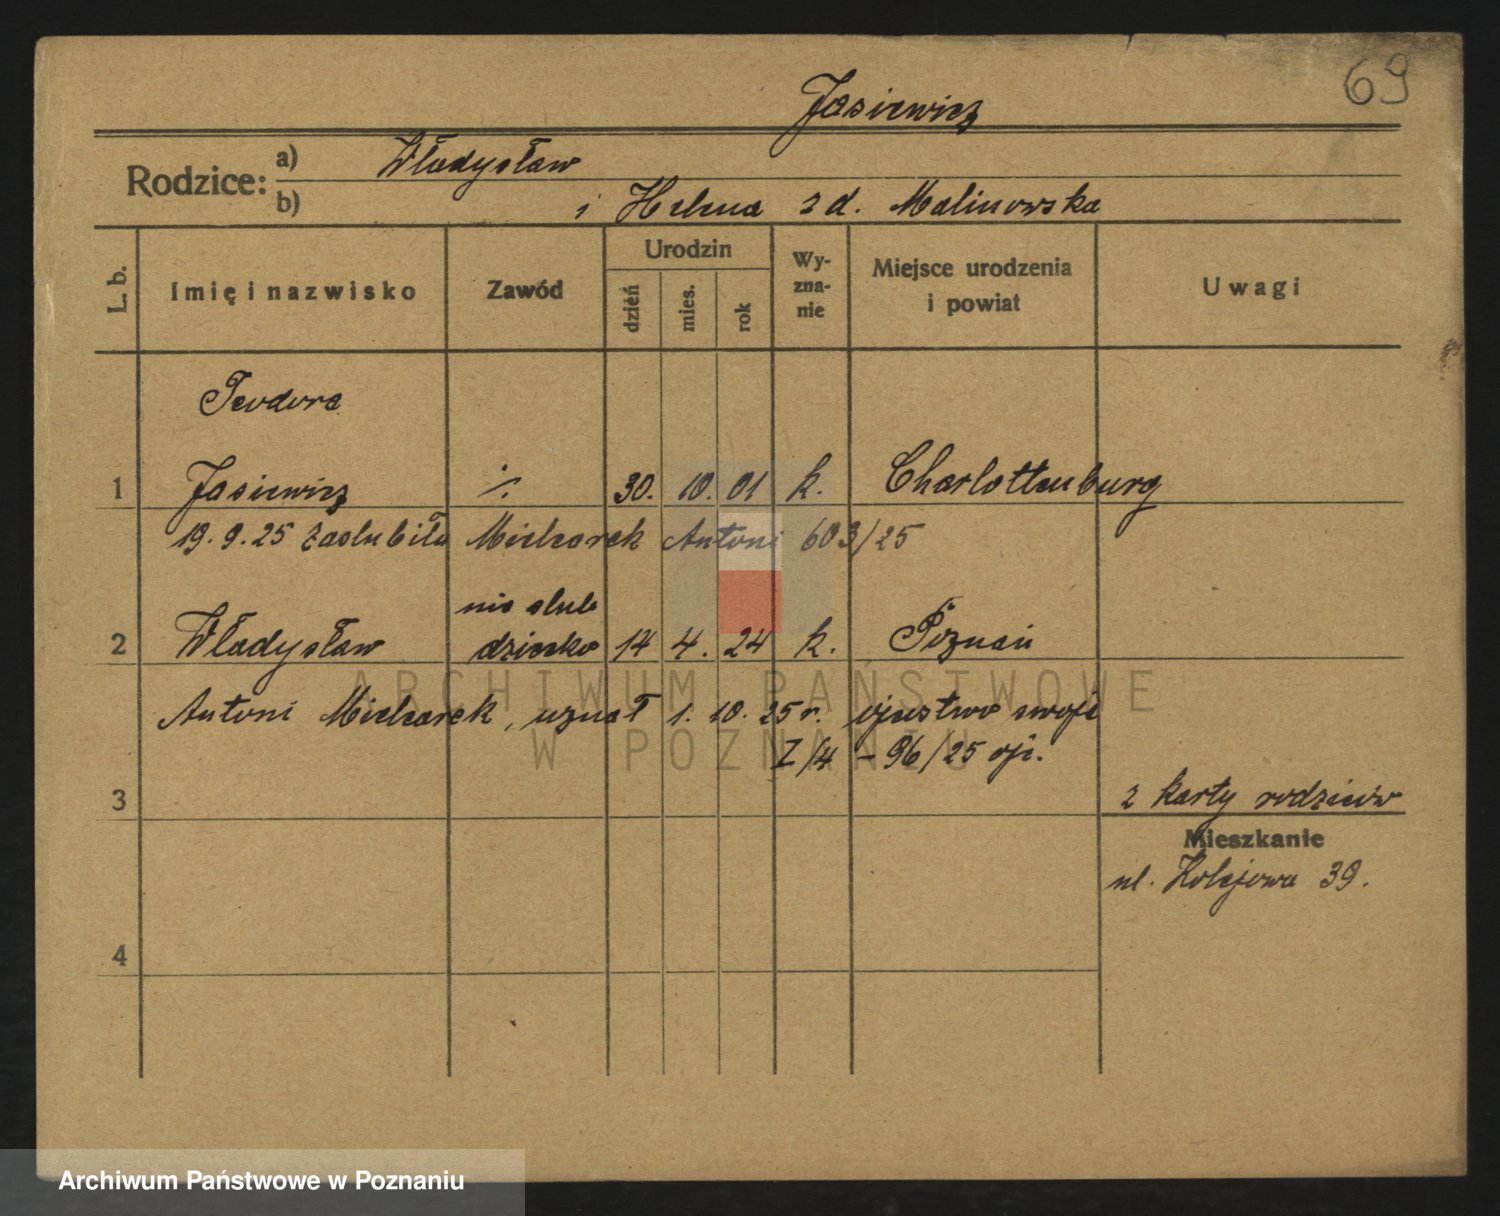 69
Jasiewicz
Rodzice: a) Władysław
b) i Helena z d. Malinowska
L. b. Imię i nazwisko Zawód Urodzin dzień mies. rok Wy-zna-nie Miejsce urodzenia i powiat Uwagi
Teodora
1 Jasiewicz ./. 30. 10. 01 k. Charlottenburg
19. 9. 25 zaślubiła Mielcarek Antoni 603/25
nie ślub
2 Władysław dziecko 14 4. 24 k. Poznań
Antoni Mielcarek, uznał 1. 10. 25 r. ojcostwo swoje
Z/4 - 96/25
3 z karty rodziców
Mieszkanie
ul. Kolejowa 39.
4
ARCHIWUM PAŃSTWOWE
W POZNANIU
Archiwum Państwowe w Poznaniu